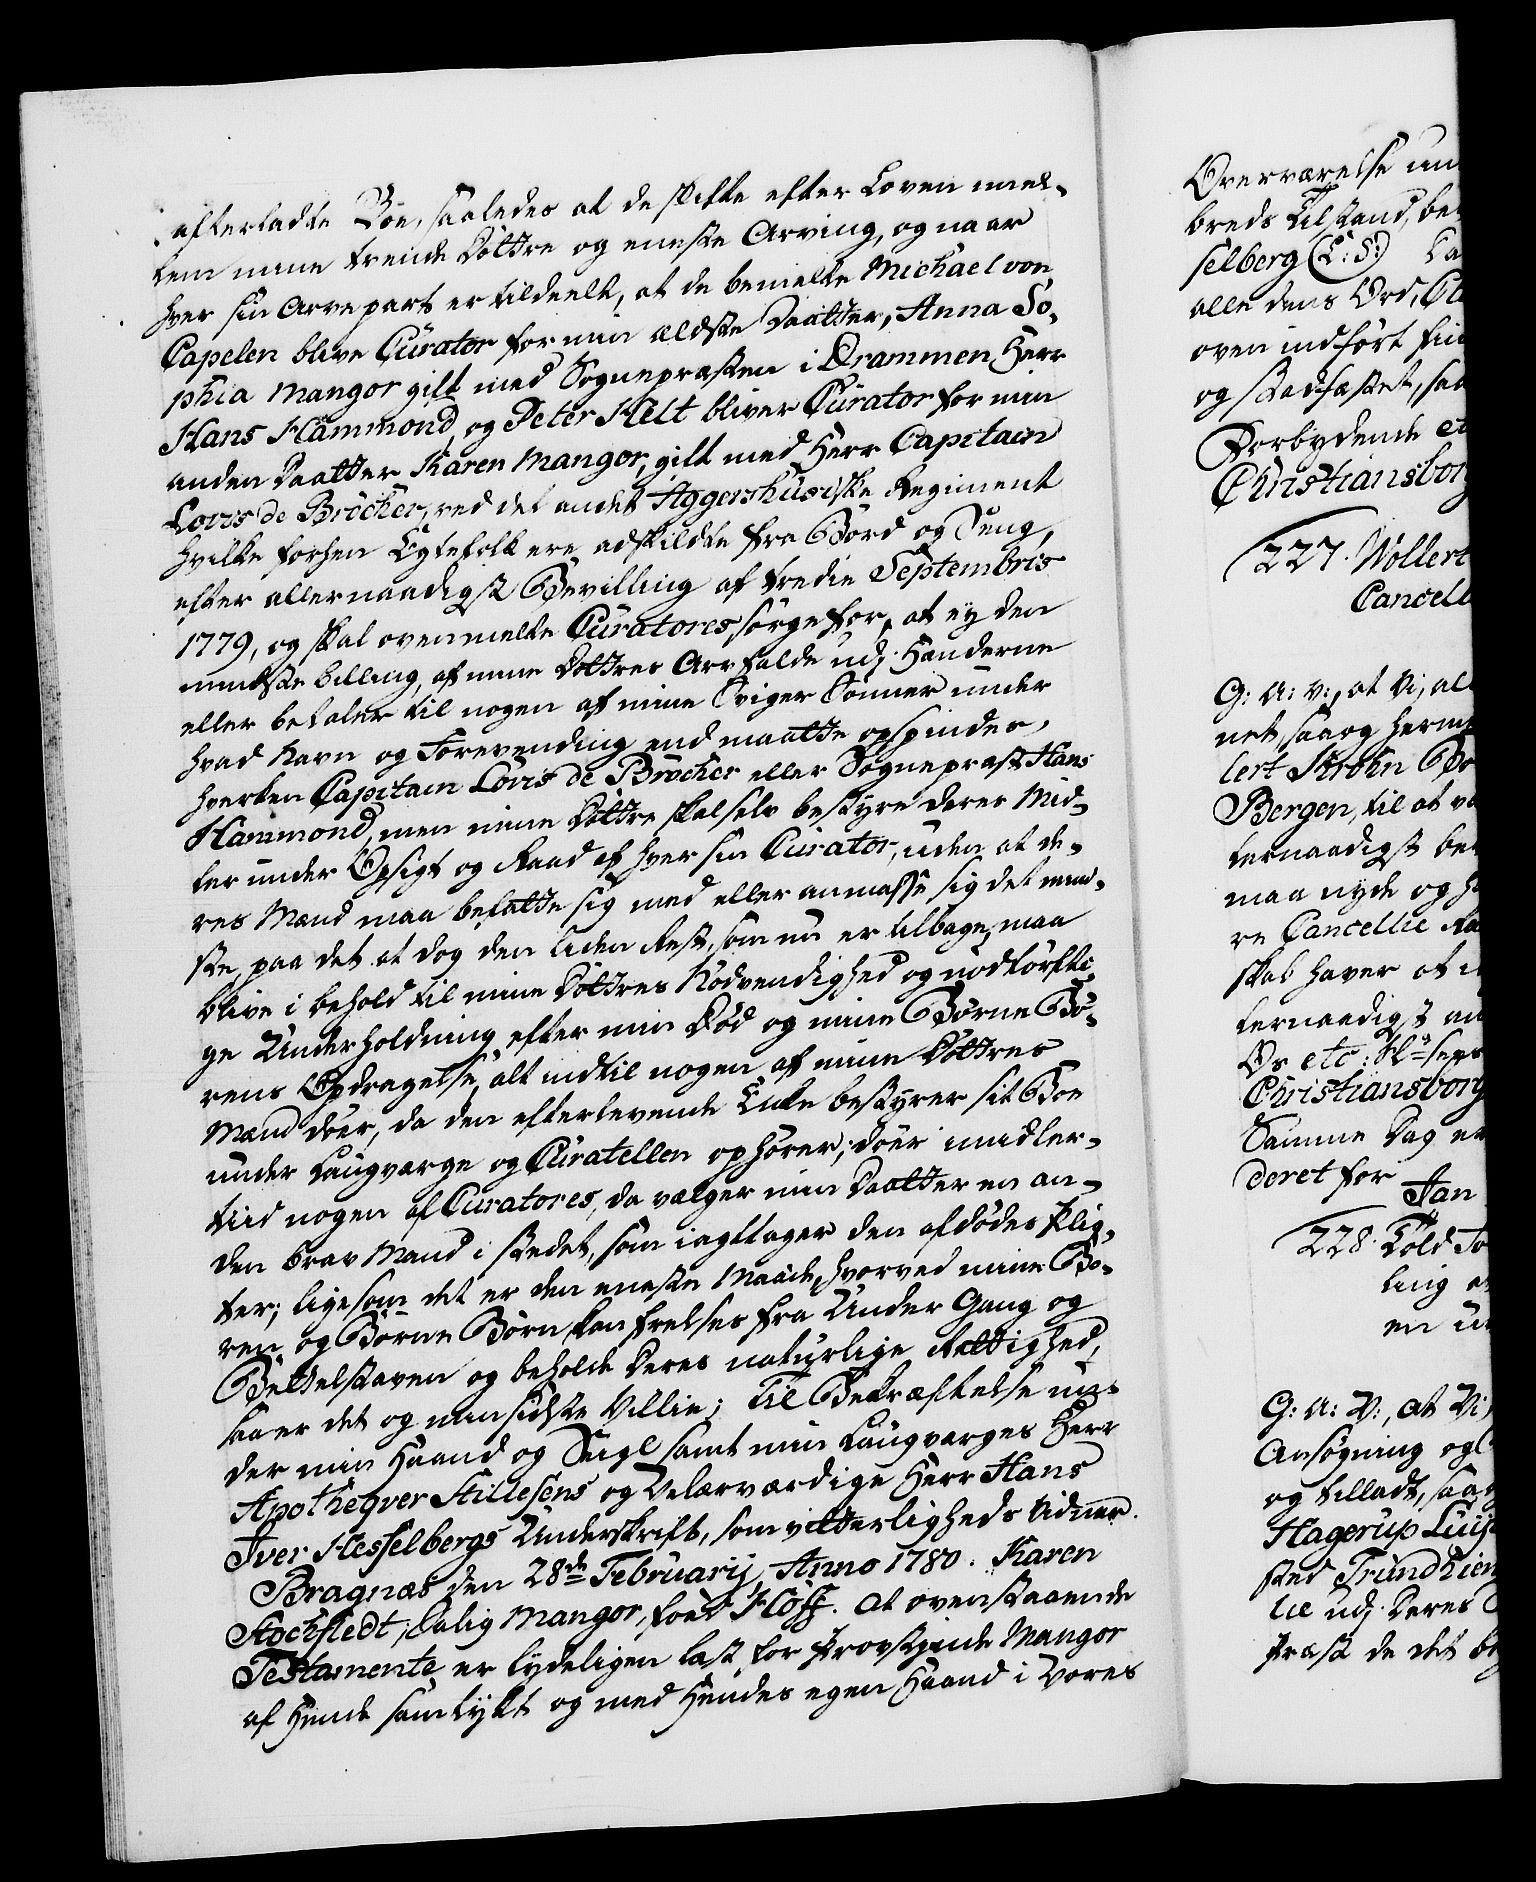 efterladte Boe, saaledes at de skifte efter Loven mel-
lem mine tvende Døttre og eneste Arving, og naar
hver sin Arvepart er tildeelt, at da bemelte Michael von
Capelen blive Curator for min ældste Daatter, Anna So-
phia Mangor gift med Sognepræsten i Drammen Herr
Hans Hammond, og Peter Kelt bliver Curator for min
anden Daatter Karen Mangor, gift med Herr Capitain
Lovis de Brocher, ved det andet Aggershusiske Regiment
hvilke forhen Egtefolk ere adskildte fra Bord og Seng,
efter allernaadigst Bevilling af tredie Septembris
1779, og skal ovenmelte Curatores, sørge for, at ey den
mindste billing, af mine Døttres Arv falde udj Hænderne
eller betales til nogen af mine Sviger Sønner under
hvad Navn og Forevending end maatte opfindes,
hverken Capitain Lovis de Brocher eller Sognepræst Hans
Hammond, men mine Døttre skal selv bestyre deres Mid-
ler under Opsigt og Raad af hver sin Curator, uden at de-
res Mænd maa befatte sig med eller anmasse sig det mind-
ste, paa det at dog den liden Rest, som nu er tilbage, maa
blive i behold til mine Døttres Nødvendighed og nødtørfti-
ge Underholdning efter min Død og mine Børne Bø-
rens Opdragelse, alt indtil nogen af mine Døttres
Mænd døer, da den efterlevende Enke bestyrer sit Boe
under Laugværge og Curatellen ophører; døer imidler-
tiid nogen af Curatores, da vælger min Daatter en an-
den brav Mand i stedet, som iagttager den afdødes Plig-
ter; ligesom det er den eneste Maade, hvorved mine Bø-
ren og Børne Børn kan frelses fra Under Gang og
Bettelstaven og beholde deres naturlige Rettighed,
saa er det og min sidste Villie; Til Bekræftelse un-
der min Haand og Seigl samt min Laugværges Herr
Apotheqver Stillesens og Velærværdige Herr Hans
Iver Hesselbergs Underskrift, som vitterligheds Vidner.
Bragnæs den 28de Februarij, Anno 1780. Karen
Stockfledt, Salig Mangor, fød Hoff. At ovenstaaende
Testamente er lydeligen læst for Provstjnde Mangor
af Hende samtykt og med Hendes egen Haand i Vores
Overværelse un
breds Tilstand, be
selberg (L: S:) La
alle dens Ord, Cl
oven indført fin
og stadfæstet, saa
Forbydende et
Christiansbor
227. Wollert
Cancell
G: A: V:, at Vi, al
net, saa og herm
lert Krohn Bo
Bergen, til at v
lernaadigst be
maa nyde og h
re Cancellie Ra
skab haver at
lernaadigst an
Os etc:
Christiansborg
Samme Dag er
deret for Jan
228. Told
ling
en
G: A: V:, at Vi,
Ansøgning og
og tilladt, saa
Hagerup Luj
sted Trundhiem
lie udj deres
Præst de det be